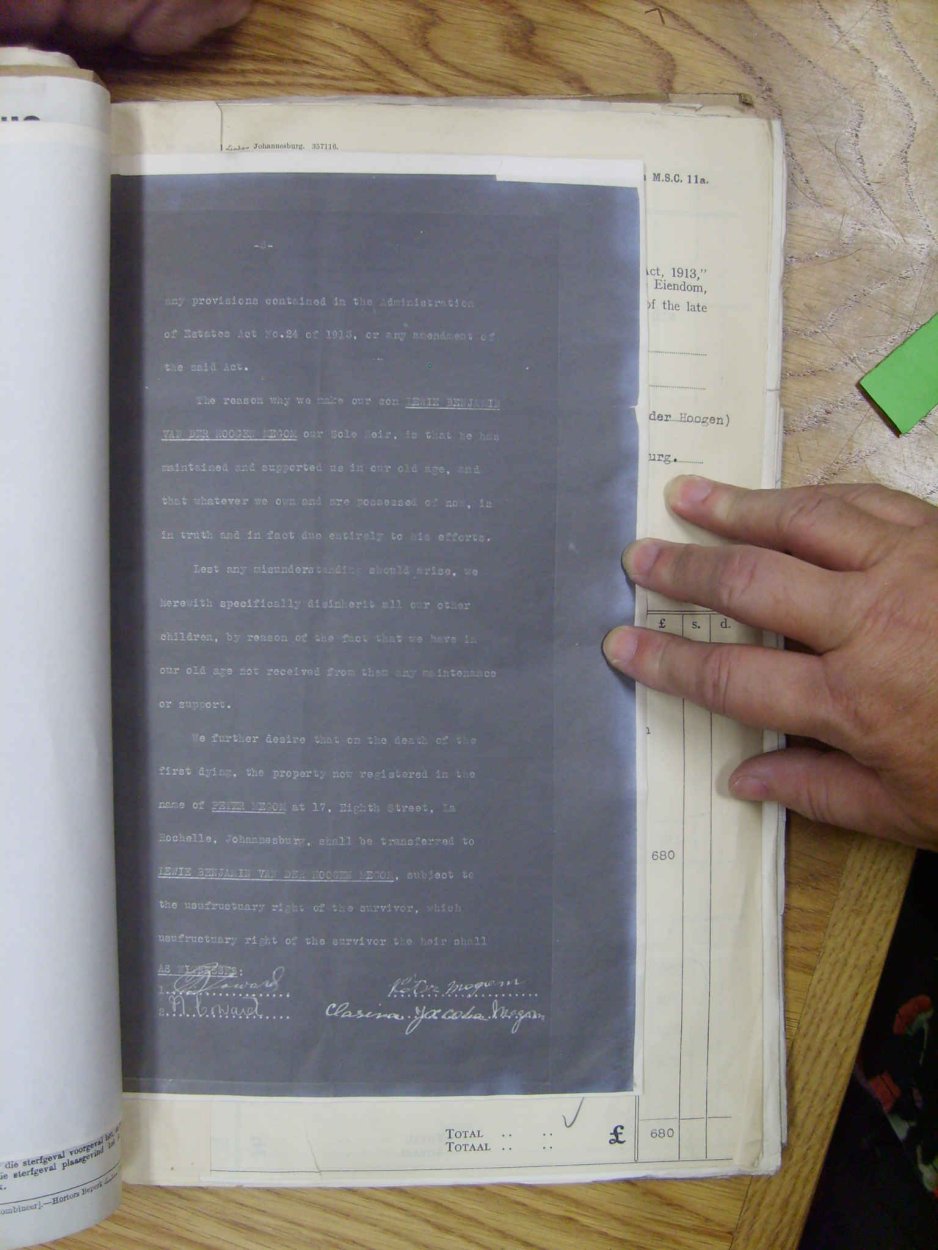 Johannesburg. 357116.
M.S.C. 11a.
Act, 1913,"
Eiendom,
of the late
der Hoogen)
urg.
£ s. d.
680
any provisions contained in the Administration
of Estates Act No.24 of 1913, or any amendment of
the said Act.
The reason why we make our son LEWIE BENJAMIN
VAN DER HOOGEN MEGOM our Sole Heir, is that he has
maintained and supported us in our old age, and
that whatever we own and are possessed of now, is
in truth and in fact due entirely to his efforts.
Lest any misunderstanding should arise, we
herewith specifically disinherit all our other
children, by reason of the fact that we have in
our old age not received from them any maintenance
or support.
We further desire that on the death of the
first dying, the property now registered in the
name of PETER MEGOM at 17, Eighth Street, La
Rochelle, Johannesburg, shall be transferred to
LEWIE BENJAMIN VAN DER HOOGEN MEGOM, subject to
the usufructuary right of the survivor, which
usufructuary right of the survivor the heir shall
AS WITNESSES:
Peter Megom
Clasina Jacoba Megom
TOTAL .. .. £ 680
TOTAAL .. ..
die sterfgeval voorgeval het
die sterfgeval plaasgevind het